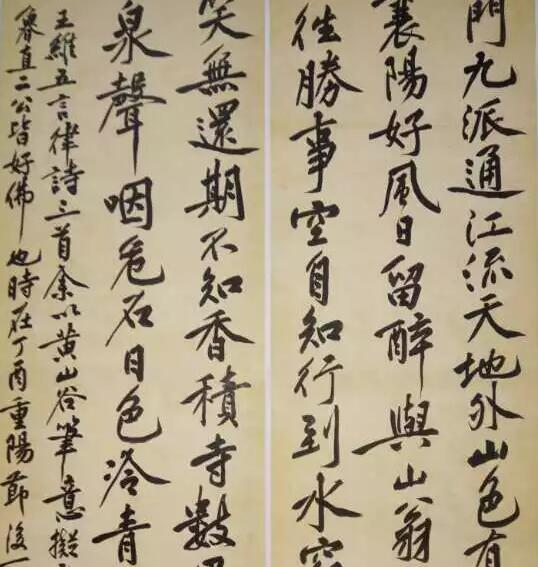 門九派通江流天地外山色有
襄陽好風日留醉與山翁
往勝事空自知行到水窮
笑無還期不知香積寺數里
泉聲咽危石日色冷青
王維五言律詩三首余以黃山谷筆意擬
魯直二公皆好佛也時在丁酉重陽節後一